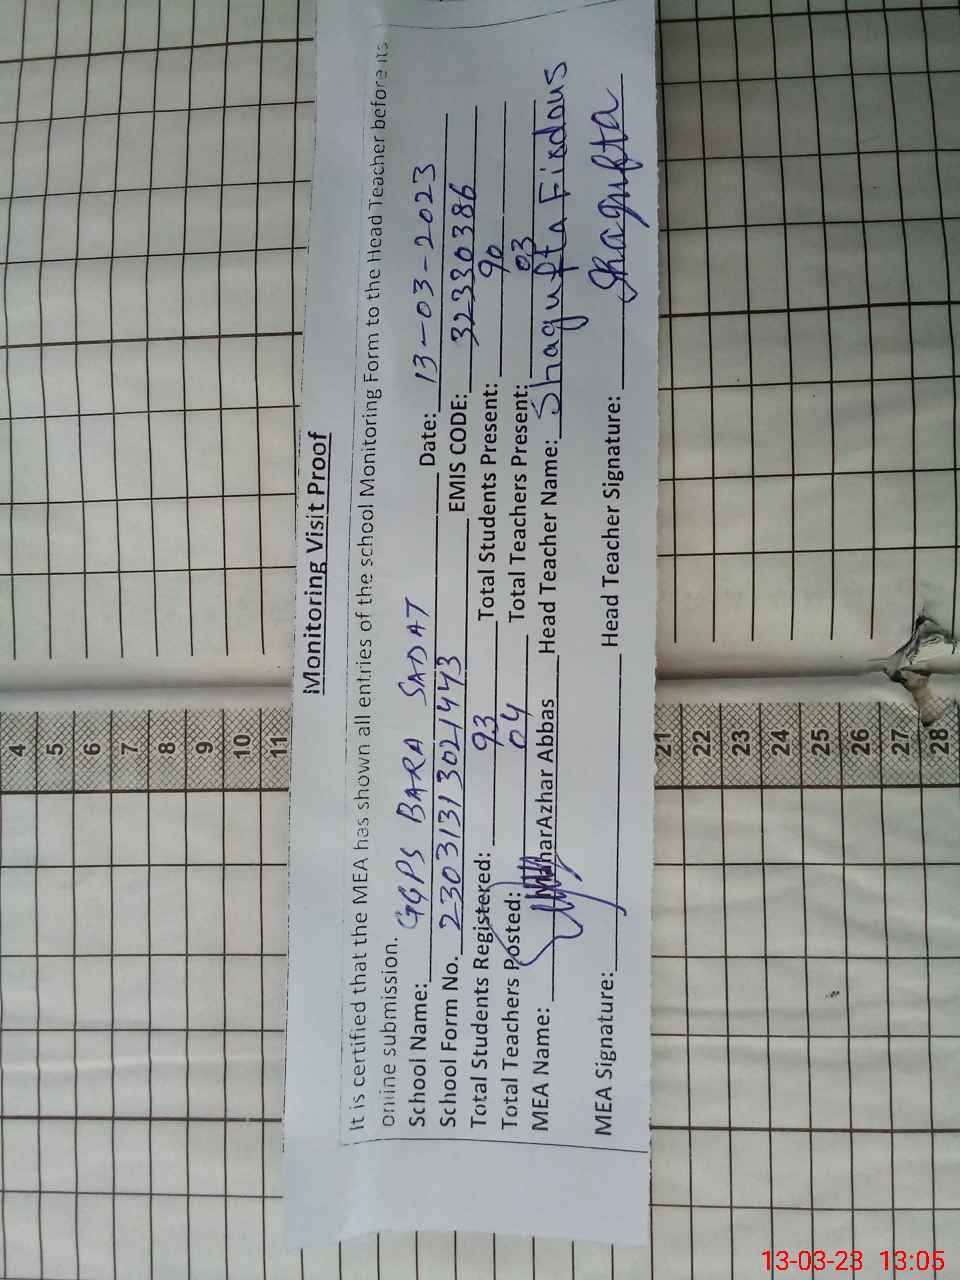 Monitoring Visit Proof
It is certified that the MEA has shown all entries of the school Monitoring Form to the Head Teacher before its
online submission.
School Name: GGPS BARA SADAT Date: 13-03-2023
School Form No. 23031313021443 EMIS CODE: 32330386
Total Students Registered: 93 Total Students Present: 90
Total Teachers Posted: 04 Total Teachers Present: 03
MEA Name: MaharAzhar Abbas Head Teacher Name: Shagufta Firdous
MEA Signature: Head Teacher Signature: Shagufta
4
5
6
7
8
9
10
11
21
22
23
24
25
26
27
28
13-03-23 13:05